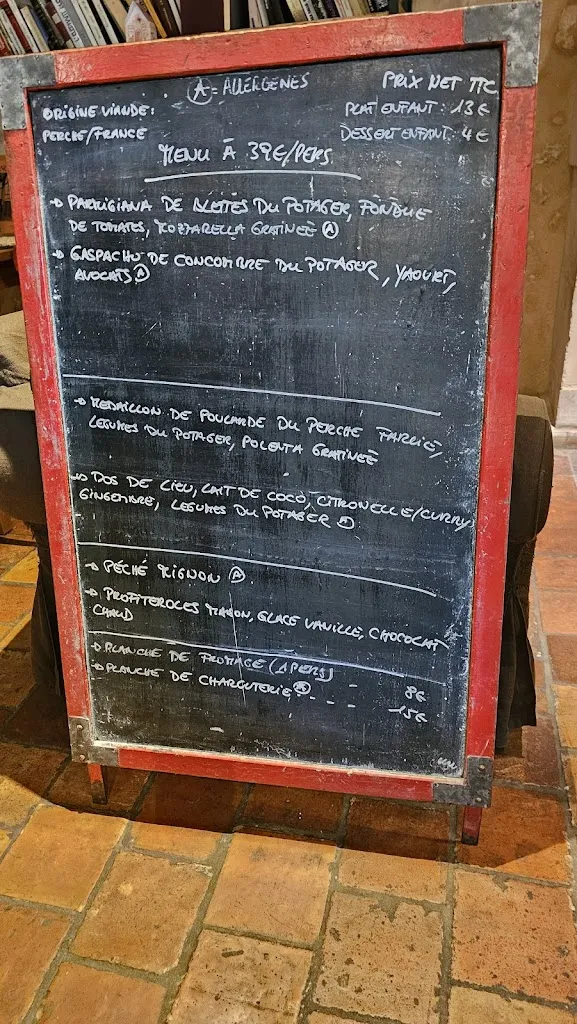 Ⓐ = ALLERGENES
PRIX NET TTC
ORIGINE VIANDE:
PERCHE/FRANCE
PLAT ENFANT: 13€
DESSERT ENFANT: 4€
MENU À 39€/PERS
→ PARMIGIANA DE BLETTES DU POTAGER, FONDUE
DE TOMATES, MOZZARELLA GRATINÉE Ⓐ
→ GASPACHO DE CONCOMBRE DU POTAGER, YAOURT,
AVOCATS Ⓐ
→ MEDAILLON DE POULARDE DU PERCHE FARCIE,
LEGUMES DU POTAGER, POLENTA GRATINÉE
→ DOS DE LIEU, LAIT DE COCO, CITRONELLE/CURRY
GINGEMBRE, LEGUMES DU POTAGER Ⓐ
→ PÉCHÉ MIGNON Ⓐ
→ PROFITEROLES MAISON, GLACE VANILLE, CHOCOLAT
CHAUD
→ PLANCHE DE FROMAGE (1 PERS) - 8€
→ PLANCHE DE CHARCUTERIE Ⓐ - - - 15€